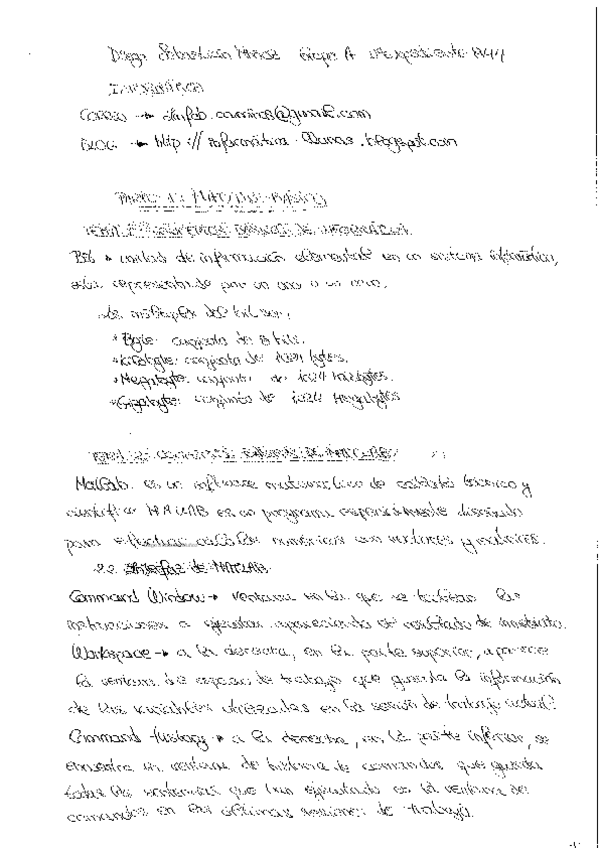 Diego Sebastian Grupo A Nº expediente
INFORMATICA
CORREO → @gmail.com
BLOG → http://informatica .blogspot.com
PARTE 1: MATLAB BÁSICO
TEMA 1: CONCEPTOS BÁSICOS DE INFORMÁTICA
Bit → unidad de información elemental en un sistema informático,
esta representado por un uno o un cero.
Los múltiplos del bit son:
• Byte: conjunto de 8 bits.
• Kilobyte: conjunto de 1024 bytes.
• Megabyte: conjunto de 1024 kilobytes.
• Gigabyte: conjunto de 1024 Megabytes
TEMA 2: CONCEPTOS BÁSICOS DE MATLAB
MatLab es un software matemático de cálculo técnico y
científico MATLAB es un programa especialmente diseñado
para efectuar cálculos numéricos con vectores y matrices.
2.2 Interfaz de MATLAB
Command Window → ventana en la que se teclean las
instrucciones a ejecutar apareciendo el resultado de inmediato.
Workspace → a la derecha, en la parte superior, aparece
la ventana de espacio de trabajo que guarda la información
de las variables utilizadas en la sesión de trabajo actual
Command History → a la derecha, en la parte inferior, se
encuentra un ventana de historia de comandos que guarda
todas las sentencias que han ejecutado en la ventana de
comandos en las últimas sesiones de trabajo.